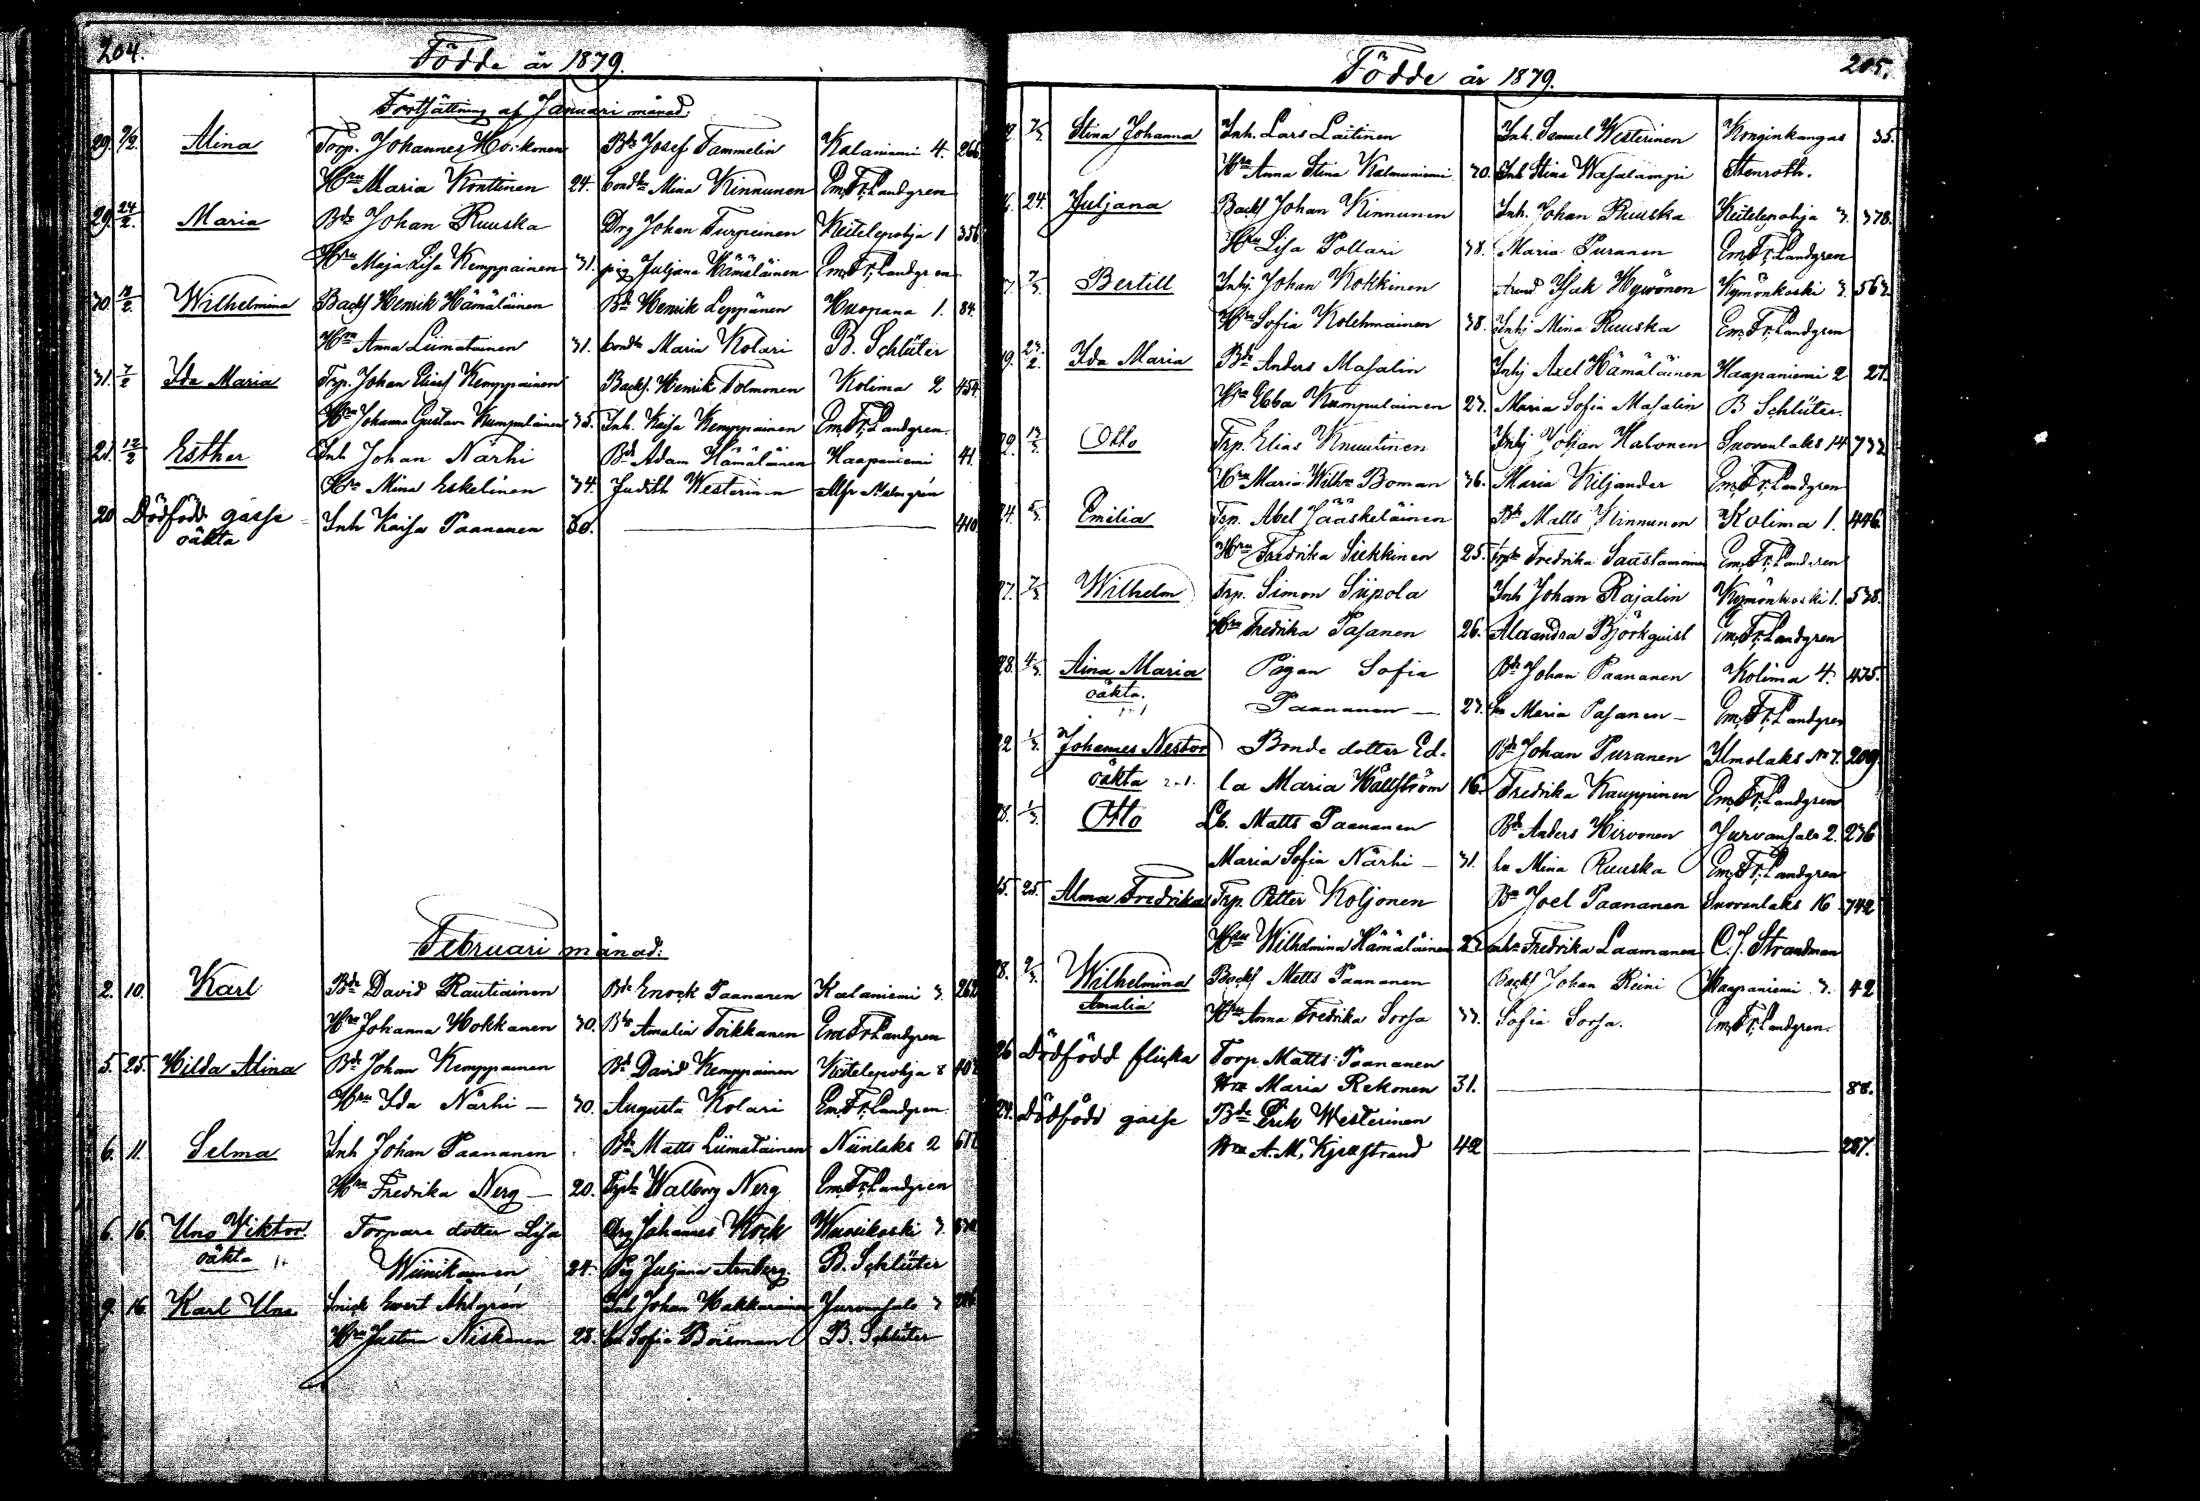 204.
Födde år 1879.
Fortsättning af Januari månad:
29. 9/2. Alina Torp. Johannes Hokkanen Bde Josef Tammelin Kalaniemi 4. 266
Hru Maria Konttinen 24. bondtr Mina Kinnunen Em. Fr. Landgren
29. 24/2. Maria Bde Johan Ruuska Drg Johan Turpeinen Keitelepohja 1 356
Hru Maja Lisa Kemppainen 31. pig Juljana Hämäläinen Em. Fr. Landgren
30. 12/2. Wilhelmina Backst Henrik Hämäläinen Bde Henrik Leppänen Huopana 1. 84.
Hru Anna Liimatainen 31. bondtr Maria Kolari B. Schlüter
31. 7/2 Ida Maria Trp. Johan Elias Kemppainen Backst. Henrik Tolmonen Kolima 2 454
Hru Johanna Gustava Kumpulainen 35. Inh. Kaisa Kemppainen Em. Fr. Landgren.
21. 12/2 Esther Inh Johan Närhi Bde Adam Hämäläinen Haapaniemi 41.
Hru Mina Eskelinen 34. Judith Westerinen Alfr Malmgrén
20 Dödfödd gosse Inh Kaisa Paananen 30. 410
oäkta
Februari månad:
2. 10. Karl Bde David Rautiainen Bde Enock Paananen Kalaniemi 3. 262
Hru Johanna Hokkanen 30. Amalia Toikkanen Em Fr Landgren
5. 25. Hilda Alina Bde Johan Kemppainen Bde David Kemppainen Keitelepohja 8
Hru Ida Närhi 30. Augusta Kolari Em. Fr. Landgren.
6. 11. Selma Inh Johan Paananen Bde Matts Liimatainen Niinilaks 2
Hru Fredrika Nerg 20. Walborg Nerg Em. Fr. Landgren
6. 16. Uno Viktor. Torpare dotter Lisa Drg Johannes Kock Wuosikoski 3.
oäkta Wiinikainen 24. Pig Juljana Arnberg B. Schlüter
9. 16. Karl Uno Snick Evert Ahlgrén Inh Johan Hakkarainen Jurvansalo 3
Hru Justina Niskanen 23. hu Sofia Boisman B. Schlüter
205.
Födde år 1879.
7/3. Stina Johanna Inh. Lars Laitinen Inh. Samuel Westerinen Konginkangas 35.
Hru Anna Stina Kalmuniemi 30. Inh Stina Wasalampi Stenroth.
24. Juljana Backst Johan Kinnunen Inh. Johan Ruuska Keitelepohja 3. 378.
Hru Lisa Pollari 38. Maria Puranen Em. Fr. Landgren
7/3. Bertill Inhj. Johan Kokkinen Arend Isak Hyvönen Kymönkoski 3. 562
Hru Sofia Kolehmainen 38. Inhj Mina Ruuska Em. Fr. Landgren
23/2. Ida Maria Bde Anders Masalin Inhj Axel Hämäläinen Haapaniemi 2 27.
Hru Ebba Kumpulainen 27. Maria Sofia Masalin B Schlüter.
22. 13/3. Otto Trp. Elias Knuutinen Inhj Johan Halonen Suovanlaks 14 732
Hru Maria Wilhna Boman 36. Maria Kiljander Em. Fr. Landgren
24. Emilia Trp. Abel Jääskeläinen Bde Matts Kinnunen Kolima 1. 446.
Hru Fredrika Siekkinen 25. Fredrika Saastamoinen Em. Fr. Landgren
27. 7/3. Wilhelm Trp. Simon Siipola Inh Johan Rajalin Kymönkoski 1. 538.
Hru Fredrika Pasanen 26. Alexandra Björkquist Em. Fr. Landgren
28. 4/3. Aina Maria Pigan Sofia Bde Johan Paananen Kolima 4. 435.
oäkta. Paananen 27. hu Maria Pasanen Em. Fr. Landgren
22 1/3. Johannes Nestor Bonde dotter Ed- Bde Johan Puranen Ilmolaks No 7. 209
oäkta la Maria Hällström 16. Fredrika Kauppinen Em. Fr. Landgren
28. 1/3. Otto Lb. Matts Paananen Bde Anders Hirvonen Jurvansalo 2. 236
Maria Sofia Närhi 31. hu Mina Ruuska Em. Fr. Landgren
15. 25. Alma Fredrika Trp. Petter Koljonen Bde Joel Paananen Suovanlaks 16 742
Hru Wilhelmina Hämäläinen 27 Fredrika Laamanen C. J. Strandman
28. 9/3. Wilhelmina Backst Matts Paananen Backst Johan Reini Haapaniemi 3. 42
Amalia Hru Anna Fredrika Sorsa 37. Sofia Sorsa. Em. Fr. Landgren.
26 Dödfödd flicka Torp Matts Paananen
Hru Maria Rekonen 31. 88.
24. Dödfödd gosse Bde Erik Westerinen
Hru A. M. Kjellstrand 42 287.